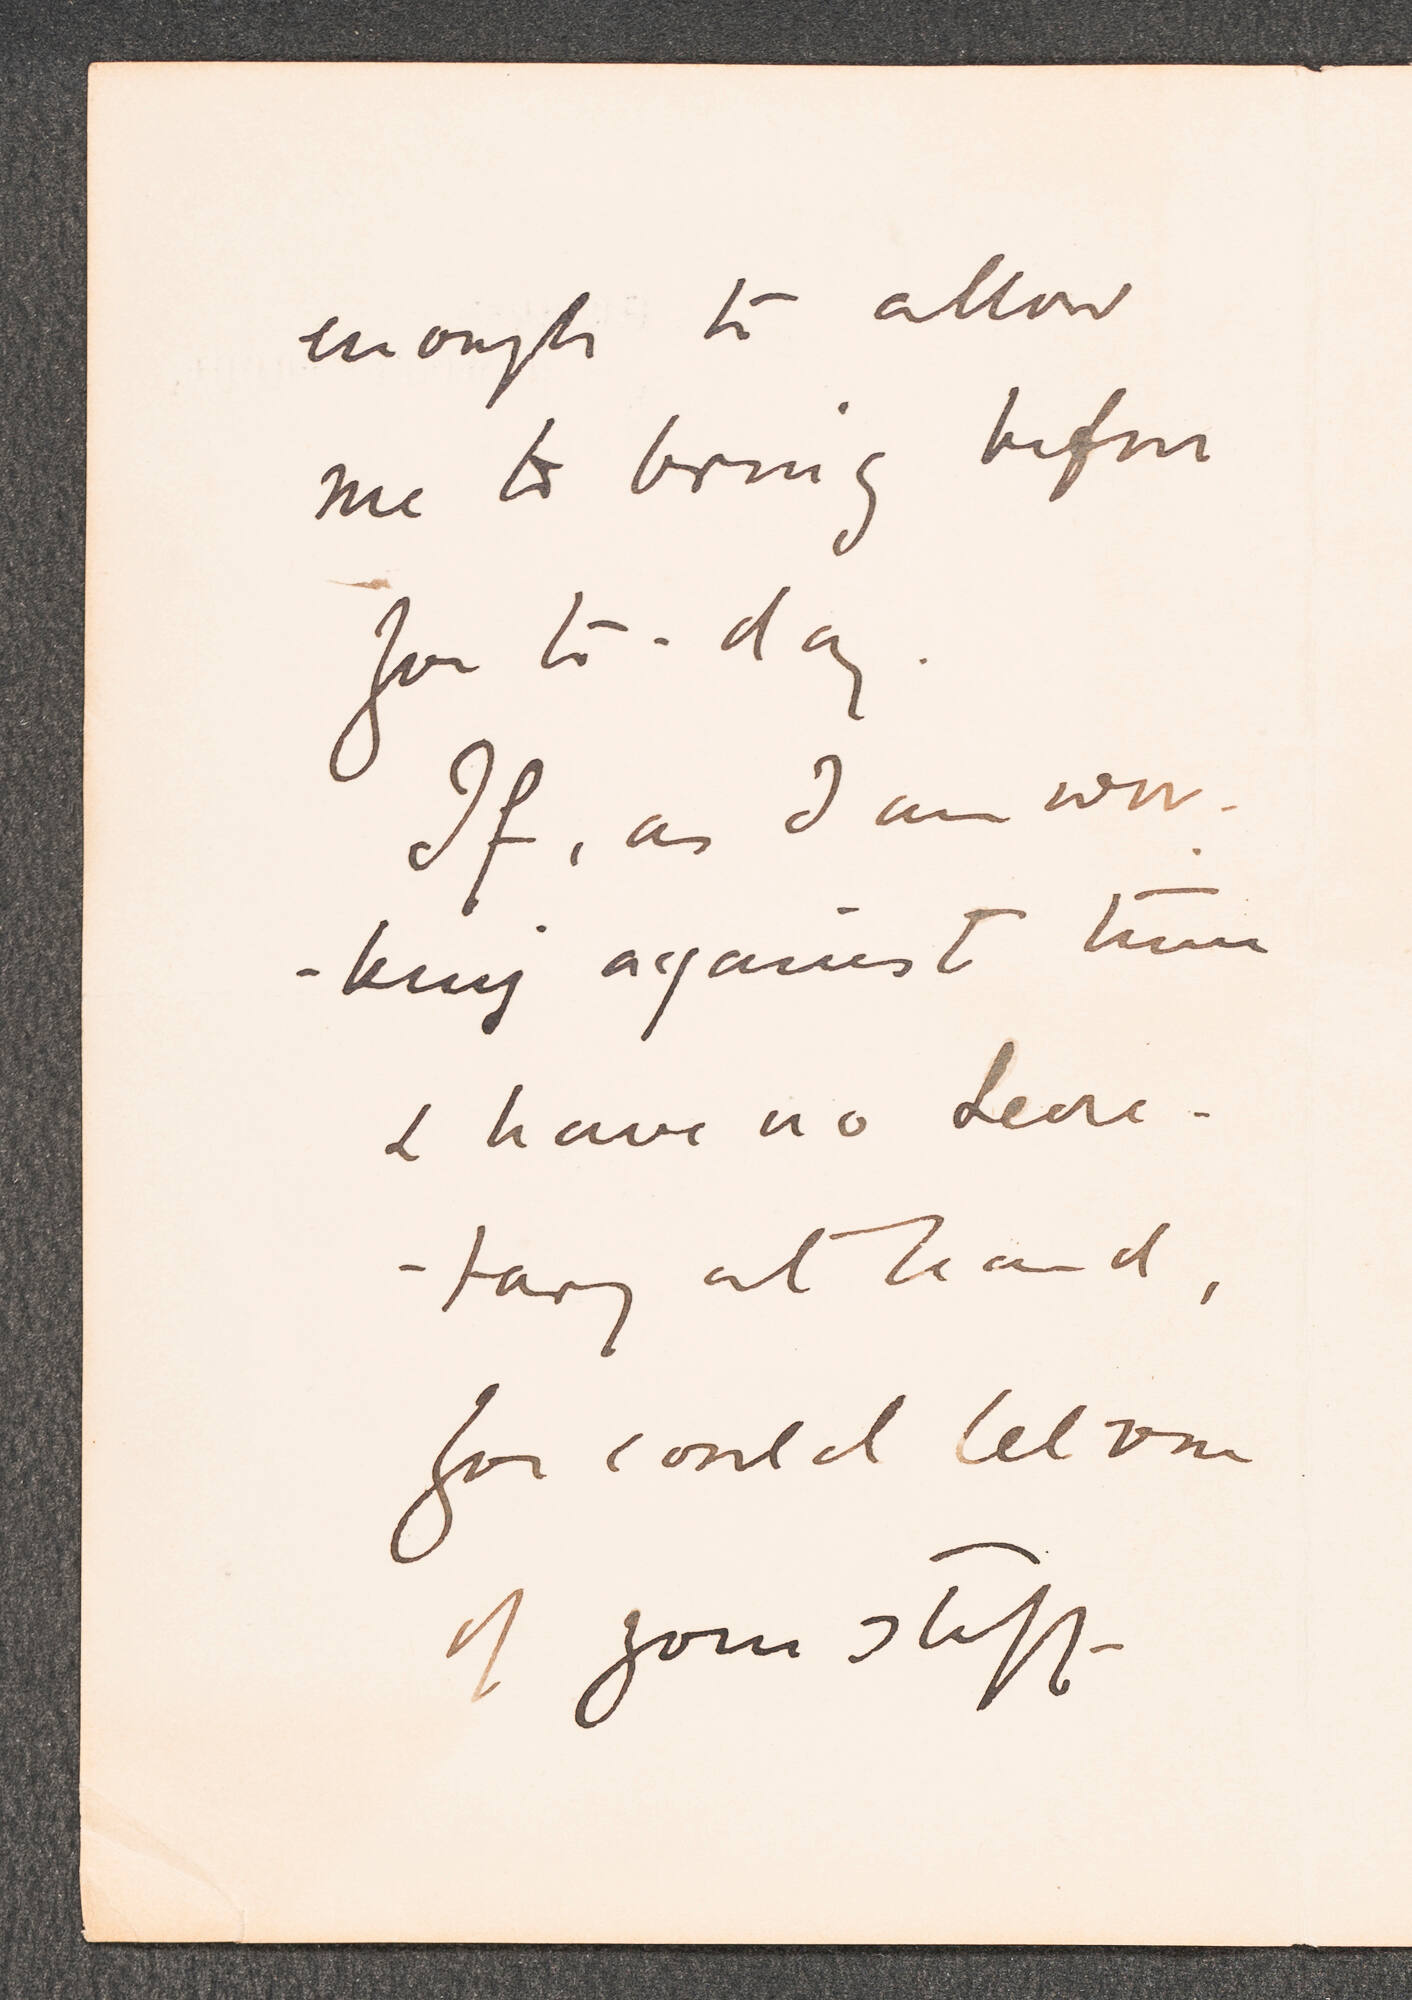 enough to allow
me to bring before
you to-day.
If, as I am wor-
-king against time
& have no secre-
-tary at hand,
you could let one
of your staff